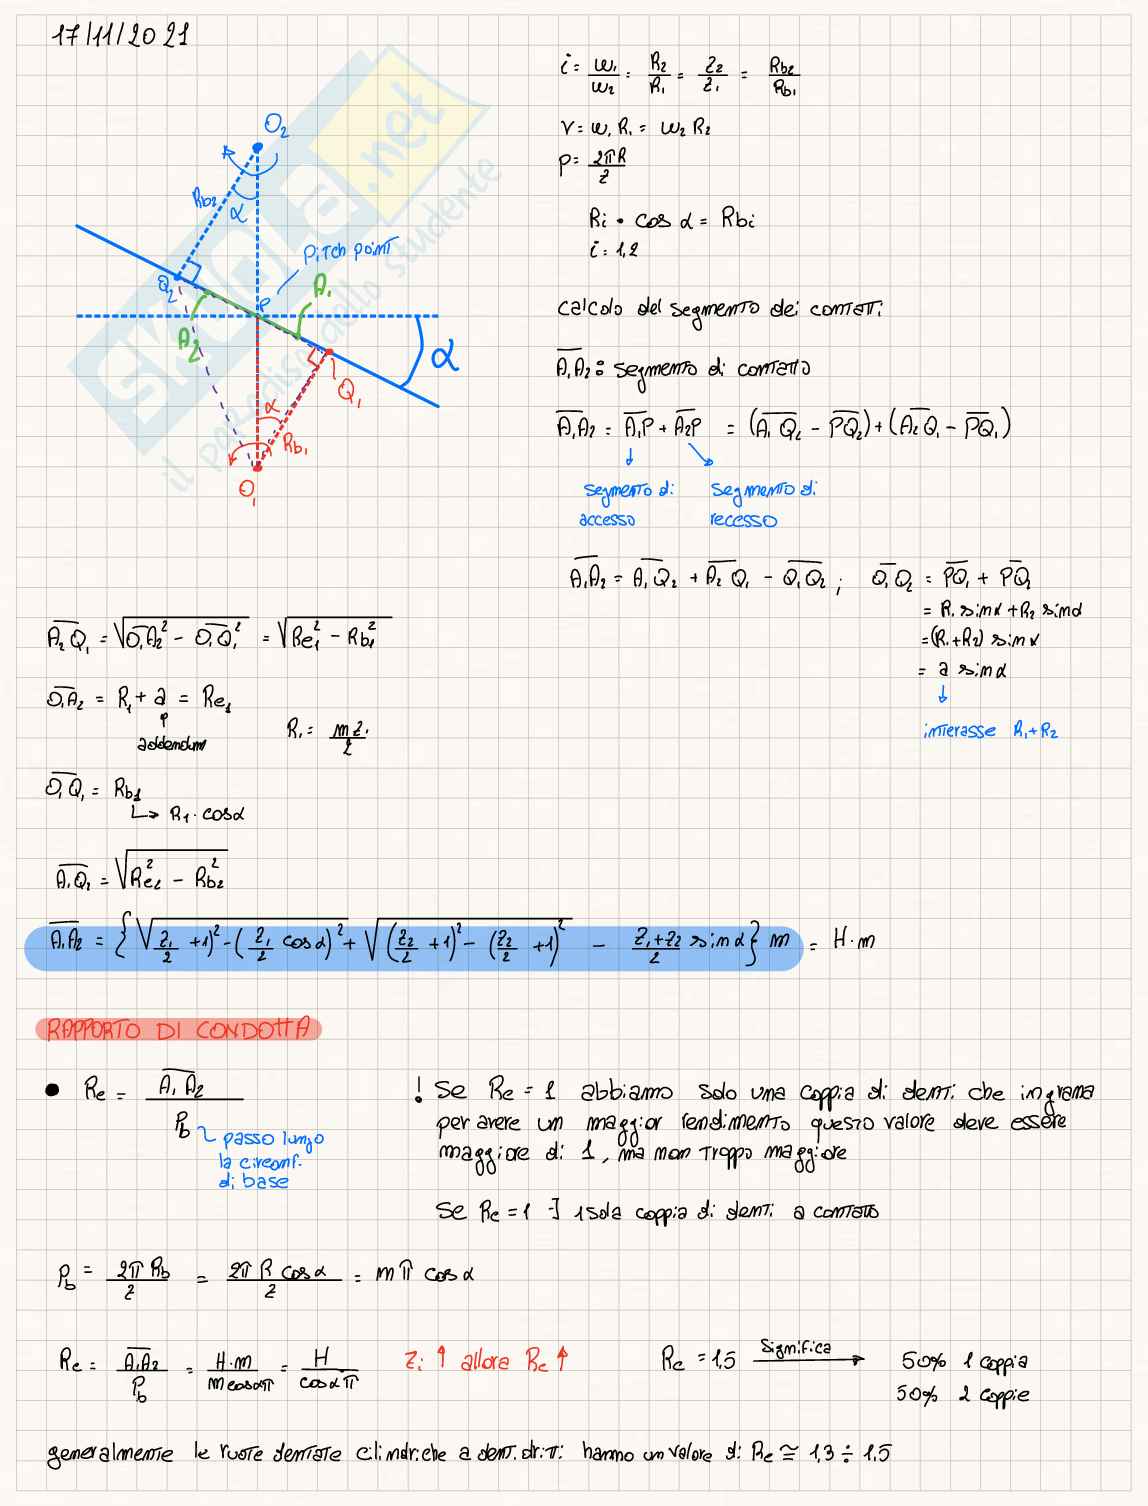 17/11/2021
i = ω₁/ω₂ = R₂/R₁ = Z₂/Z₁ = Rb₂/Rb₁
V = ω₁ R₁ = ω₂ R₂
p = 2πR/z
Ri • cos α = Rbi
i = 1,2
O₂
Rb₂
α
Pitch point
Q₂
P
A₁
A₂
α
Q₁
α
Rb₁
O₁
Skuola.net
il paradiso dello studente
calcolo del segmento dei contatti
A₁A₂ : segmento di contatto
A₁A₂ = A₁P + A₂P = (A₁Q₂ - PQ₂) + (A₂Q₁ - PQ₁)
segmento di accesso
segmento di recesso
A₁A₂ = A₁Q₂ + A₂Q₁ - Q₁Q₂ ; Q₁Q₂ = PQ₁ + PQ₂
= R₁ sinα + R₂ sinα
= (R₁+R₂) sinα
= a sinα
interasse R₁+R₂
A₂Q₁ = √(O₁A₂² - O₁Q₁²) = √(Re₁² - Rb₁²)
O₁A₂ = R₁ + a = Re₁
addendum
R₁ = mz₁/2
O₁Q₁ = Rb₁
↳ R₁ · cosα
A₁Q₂ = √(Re₂² - Rb₂²)
A₁A₂ = {√((Z₁/2 + 1)² - (Z₁/2 cosα)²) + √((Z₂/2 + 1)² - (Z₂/2 + 1)²) - Z₁+Z₂/2 sinα} m = H·m
RAPPORTO DI CONDOTTA
● Rc = A₁A₂/Pb
passo lungo
la circonf.
di base
! Se Rc = 1 abbiamo solo una coppia di denti che ingrana
per avere un maggior rendimento questo valore deve essere
maggiore di 1, ma non troppo maggiore
Se Rc = 1 → 1 sola coppia di denti a contatto
Pb = 2π Rb/z = 2π R cosα/z = m π cosα
Rc = A₁A₂/Pb = H·m/m cosα π = H/cosα π
Zi ↑ allora Rc ↑
Rc = 1,5 significa → 50% 1 coppia
50% 2 coppie
generalmente le ruote dentate cilindriche a denti dritti hanno un valore di Rc ≅ 1,3 ÷ 1,5